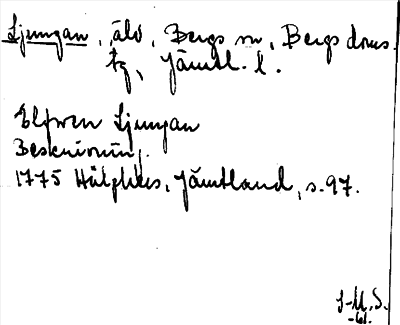 Ljungan, älv, Bergs sn, Bergs doms.
tg, Jämtl. l.
Elfwen Ljungan
Beskrivning.
1775 Hülphers, Jämtland, s. 97.
J-M. S.
-61.